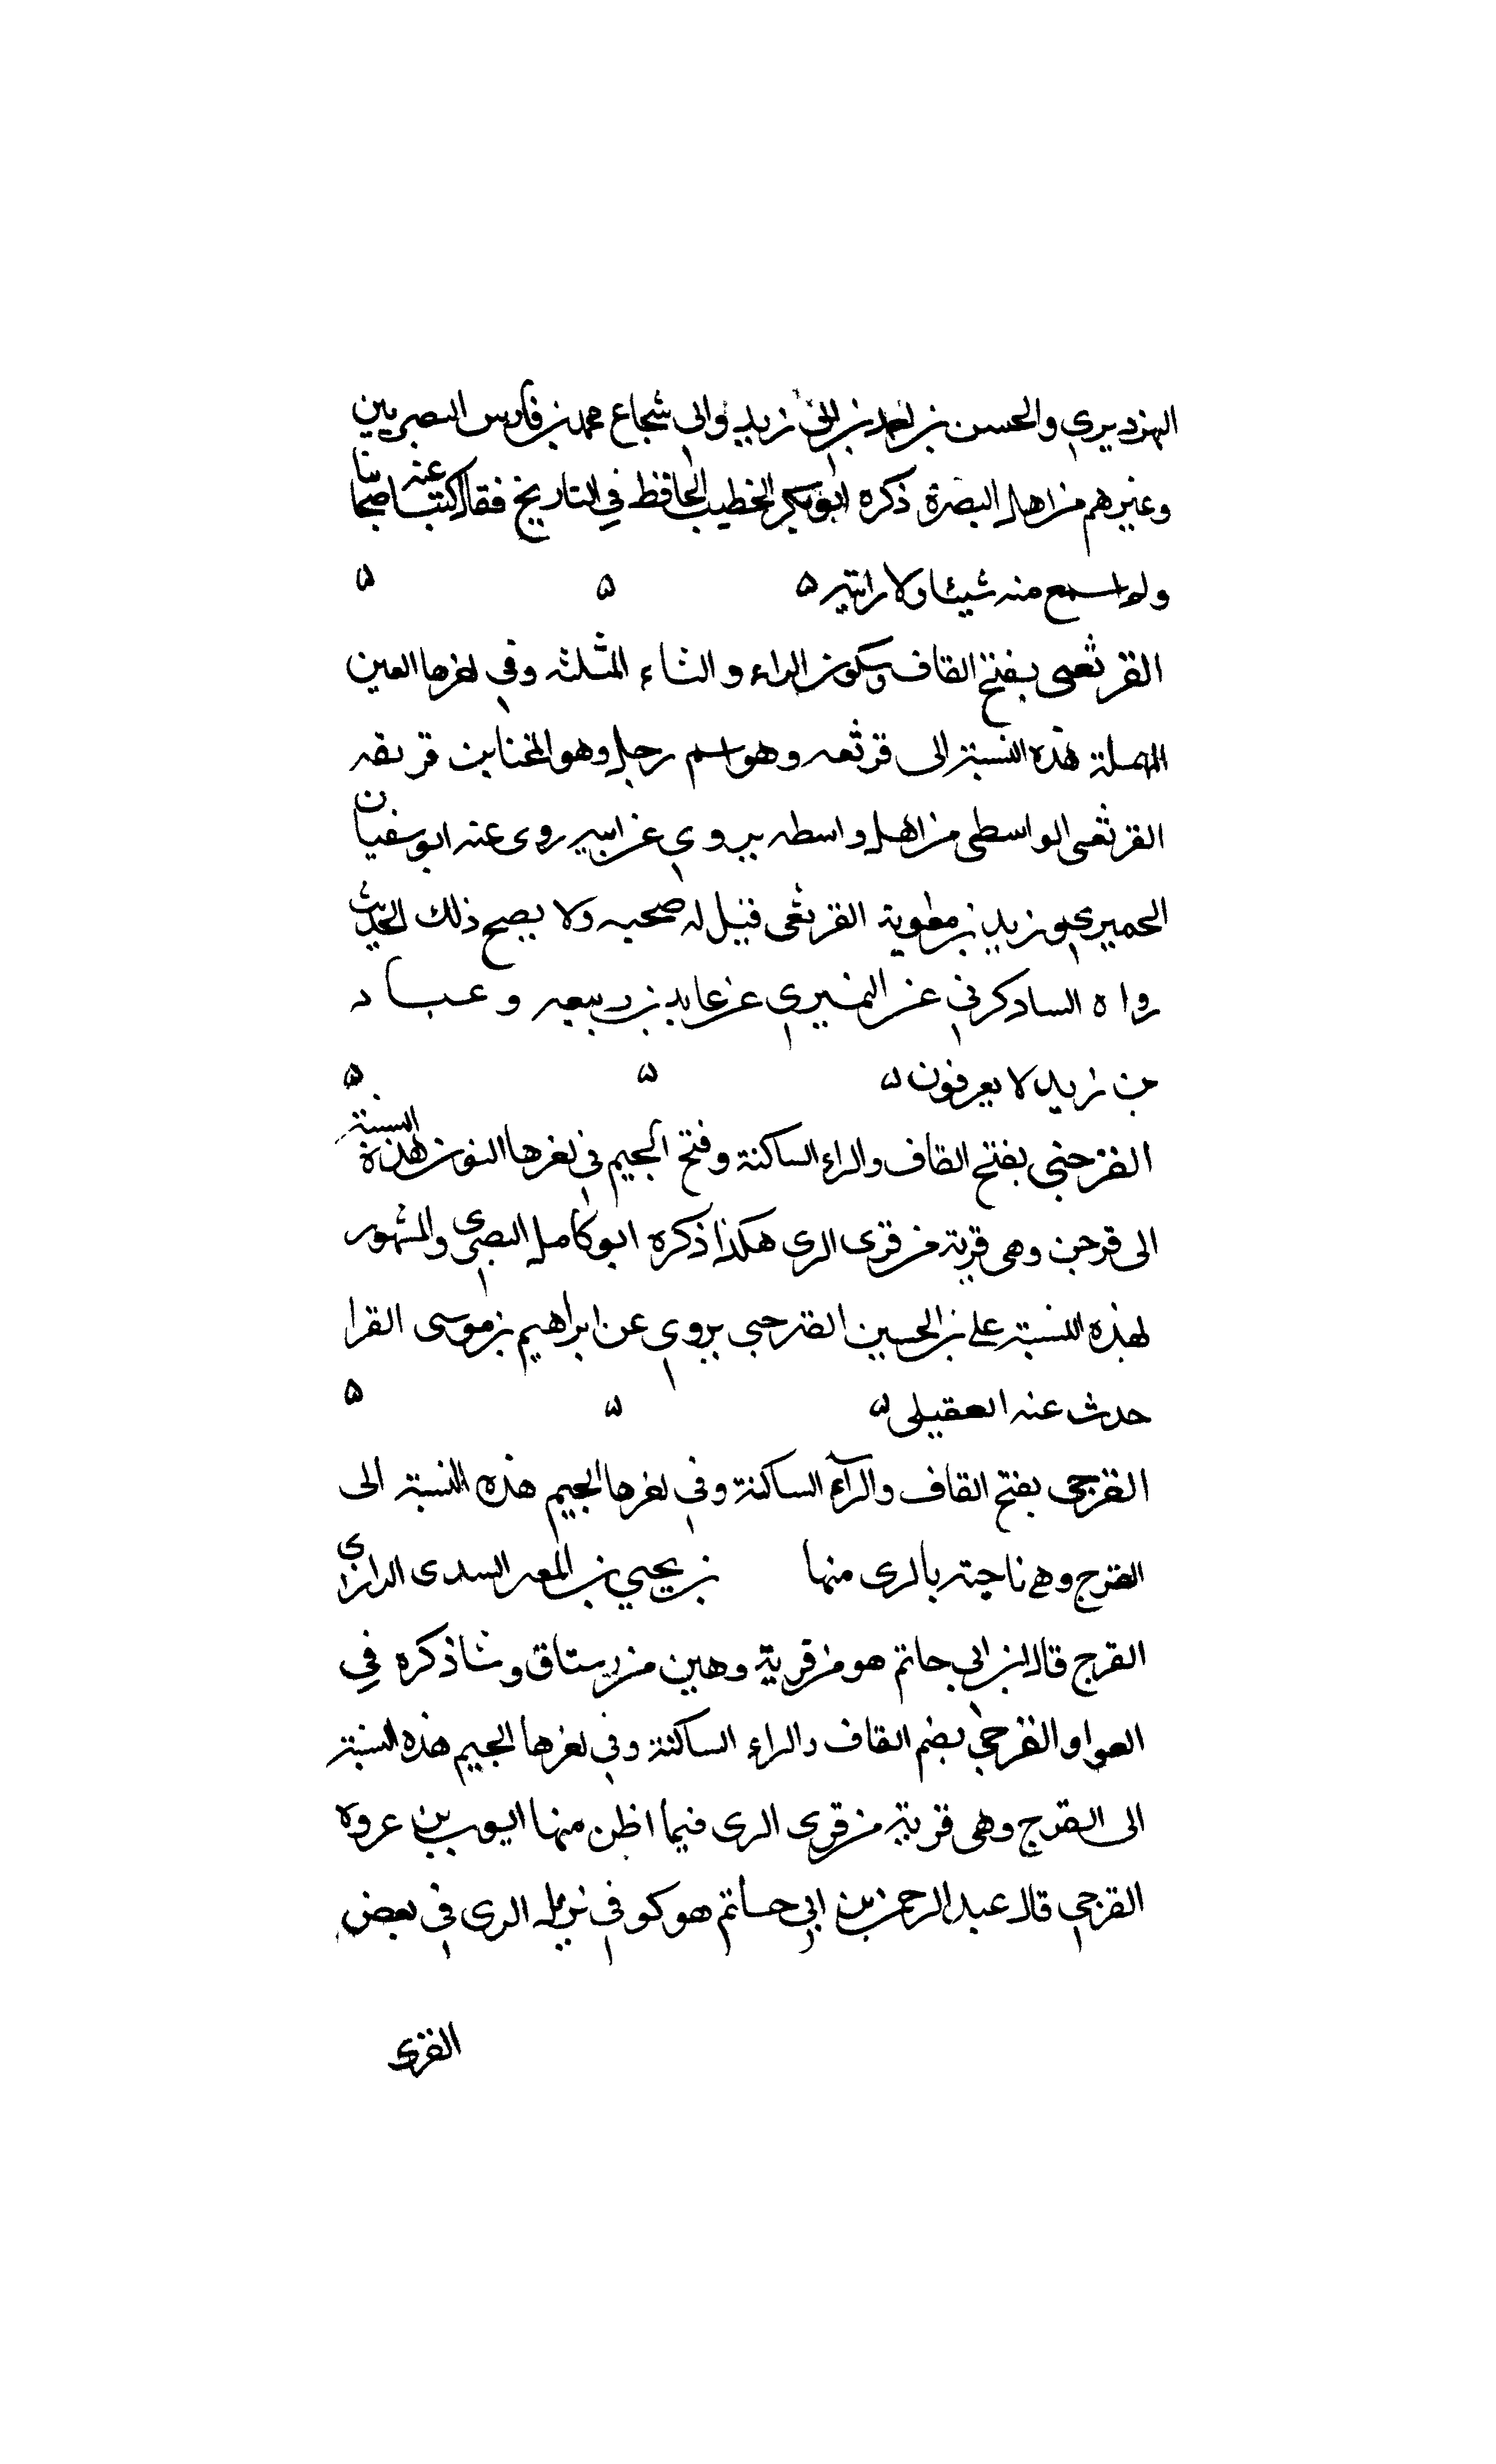 الهزديري والحسن بن احمد بن ابي زيد وابي شجاع محمد بن فارس البصريين
وغيرهم من اهل البصرة ذكره ابو بكر الخطيب الحافظ في التاريخ فقال كتب عنه اصحابنا
ولم اسمع منه شيئا ولا رايته ه ه ه
القرثعى بفتح القاف وسكون الراء والثاء المثلثه وفي اخرها العين
المهملة هذه النسبة الى قرثعه وهو اسم رجل وهو
القرثعى الواسطى من اهل واسطه يروي عن ابيه روى عنه ابو سفيان
الحميري وزيد بن معوية القرثعى قيل له صحبه ولا يصح ذلك الحديث
رواه السادكوني عن النميري عن عايد بن ربيعه وعباد
بن زيد لا يعرفون ه ه ه
القرجنى بفتح القاف والراء الساكنة وفتح الجيم في اخرها النون هذه النسبة
الى قرجن وهى قرية من قرى الرى هكذا ذكره ابو كامل البصري والمشهور
بهذه النسبة على بن الحسين القرجنى يروي عن ابراهيم بن موسى الفرا
حدث عنه العقيلى ه ه ه
القرجى بفتح القاف والرآء الساكنة وفي اخرها الجيم هذه النسبة الى
القرج وهى ناحية بالرى منها بن يحيي بن السدى الرازي
القرج قال ابن ابي حاتم هو من قرية وهبن من رستاق وشاذكره في
الواو القرجى بضم القاف والراء الساكنة وفي اخرها الجيم هذه النسبة
الى القرج وهى قرية من قرى الرى فيما اظن منها ايوب بن عروه
القرجي قال عبد الرحمن بن ابي حاتم هو كوفي نزيل الرى في بعض
القرى